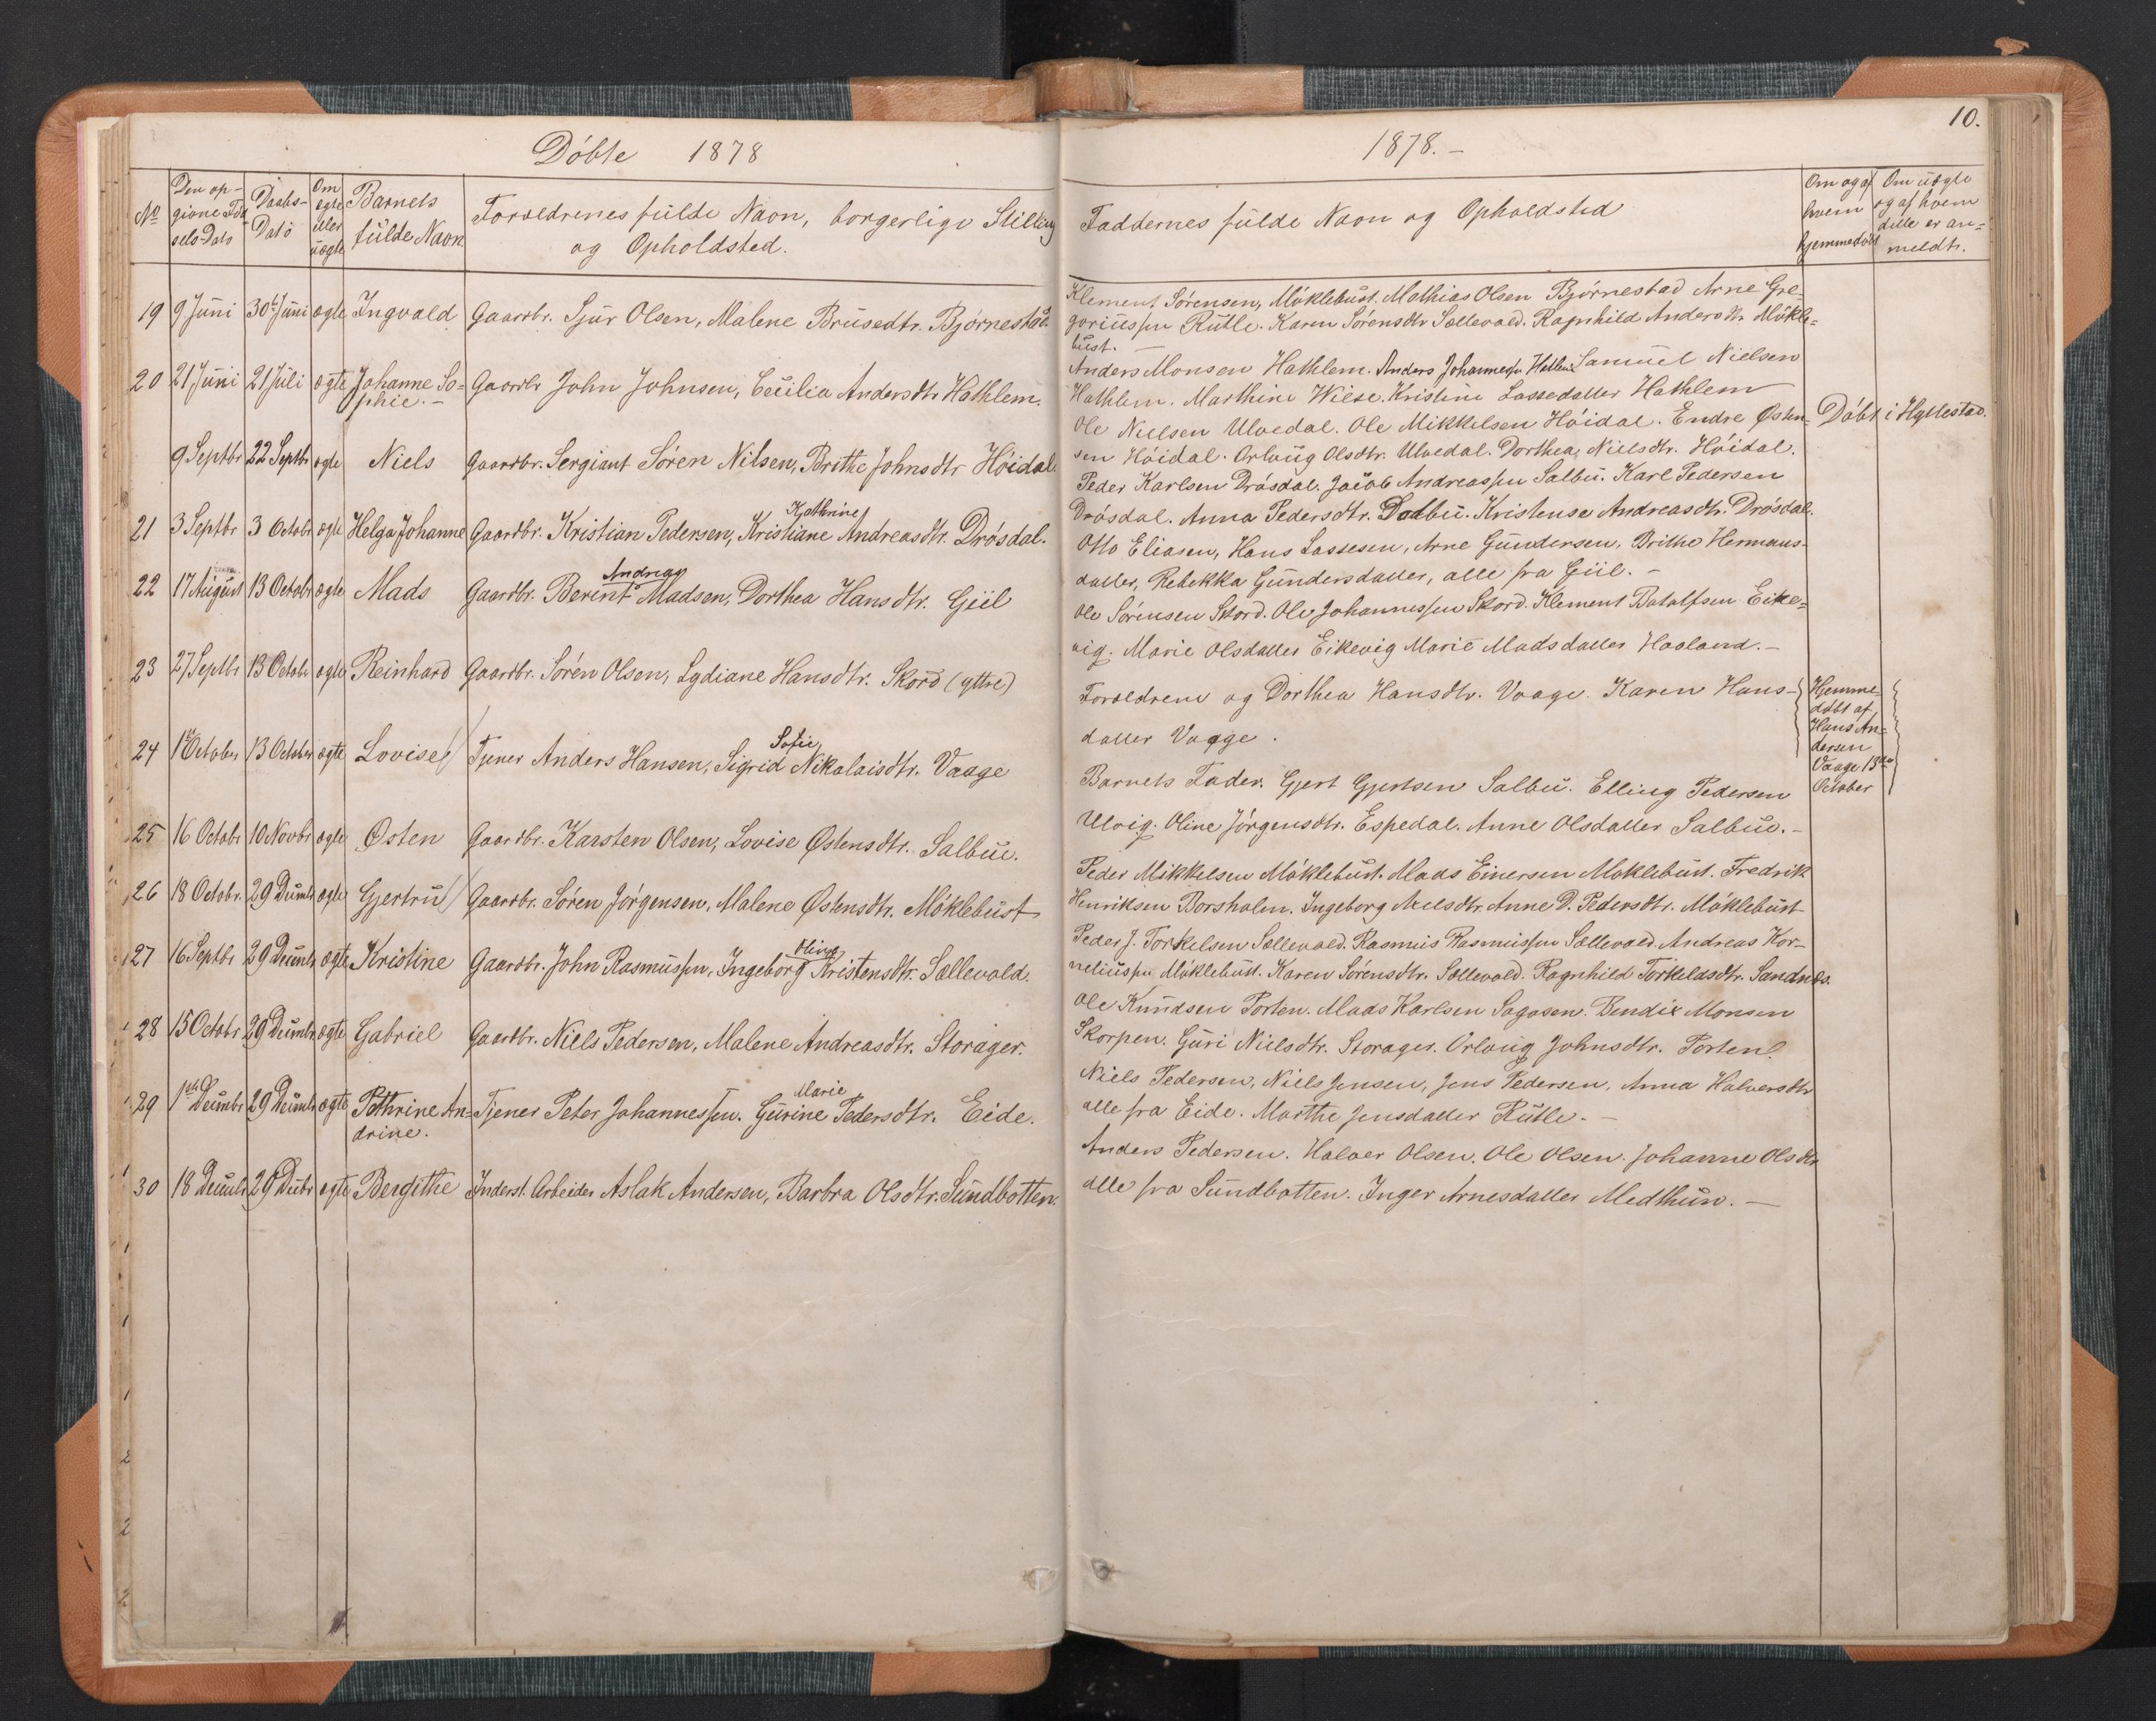 Döbte 1878
No
Den op-
givne Fød
sels Dato
Daabs-
Dato
Om
ægte
eller
uægte
Barnets
fulde Navn
Forældrenes fulde Navn, borgerlige Stilling
og Opholdsted.
19 9 Juni 30te Juni ægte Ingvald Gaardbr. Sjur Olsen, Malene Brusedtr. Bjørnestad.
20 21 Juni 21 Juli ægte Johanne So- Gaardbr John Johnsen, Cecilia Andersdtr Hathlem.
phie. -
9 Septbr 22 Septbr ægte Niels Gaardbr. Sergiant Sören Nilsen, Brithe Johnsdtr Höidal.
Kathrine
21 3 Septbr 3 Octobr ægte Helga Johanne Gaardbr. Kristian Pedersen, Kristiane Andreasdtr. Drösdal.
Andreas
22 17 August 13 Octobr ægte Mads Gaardbr. Berint Madsen, Dorthea Hansdtr. Giil
23 27 Septbr 13 Octobr ægte Reinhard Gaardbr. Sören Olsen, Lydiane Hansdtr. Skord (yttre)
Sofie
24 1st October 13 October ægte Lovise Tjener Anders Hansen, Sigrid Nikolaisdtr. Vaage
25 16 Octobr 10 Novbr ægte Østen Gaardbr. Karsten Olsen, Lovise Østensdtr. Salbu.
26 18 Octobr. 29 Decmbr ægte Gjertru Gaardbr. Sören Jörgensen, Malene Østensdtr. Möklebust
Oline
27 16 Septbr 29 Decmbr ægte Kristine Gaardbr. John Rasmussen, Ingeborg Kristensdtr. Sællevold.
28 15 Octobr 29 Decmbr ægte Gabriel Gaardbr. Niels Pedersen, Malene Andreasdtr. Storager.
Marie
29 1ste Decmbr 29 Decmbr ægte Pethrine An- Tjener Peter Johannessen. Gurine Pedersdtr. Eide.
drine.
30 18 Decmbr 29 Decbr ægte Bergithe Inderst. Arbeider Aslak Andersen, Barbra Olsdtr. Sundbotten.
10.
1878. -
Faddernes fulde Navn og Opholdsted
Om og af
hvem
hjemmedøbt
Om uægte
og af hvem
dette er an=
meldt.
Klement Sörensen, Möklebust. Mathias Olsen Björnestad Arne Gre-
goriussen Rutle. Karen Sörensdtr Sællevold. Ragnhild Andersdtr Mökle=
bust. -
Anders Monsen Hathlem. Anders Johannessen Hathlem. Samuel Nielsen
Hathlem. Marthine Wiese. Kristine Lassedatter Hathlem
Ole Nielsen Ulvedal. Ole Mikkelsen Höidal. Endre Østen- Döbt i Hyllestad.
sen Höidal. Orloug Olsdtr. Ulvedal. Dorthea Nielsdtr. Höidal.
Peder Karlsen Drösdal. Jacob Andreassen Salbu. Karl Pedersen
Drösdal. Anna Pedersdtr. Salbu. Kristense Andreasdtr. Drösdal.
Otto Eliasen, Hans Lassesen, Arne Gundersen, Brithe Hermans-
datter, Rebekka Gundersdatter, alle fra Giil. -
Ole Sörensen Skord. Ole Johannessen Skord. Klement Botolfsen Eike=
vig. Marie Olsdatter Eikevig Marie Madsdatter Haaland. -
Forældrene og Dorthea Hansdtr. Vaage. Karen Hans-
datter Vaage.
Hjemme-
döbt af
Hans An-
dersen
Vaage 13de
October
Barnets Fader. Gjert Gjertsen Salbu. Elling Pedersen
Ulvig. Oline Jörgensdtr. Espedal. Anne Olsdatter Salbu. -
Peder Mikkelsen Möklebust. Mads Einersen Moklebust. Fredrik
Henriksen Borsholm. Ingeborg Axelsdtr. Anne D. Pedersdtr. Möklebust
Peder J. Torkelsen Sællevold. Rasmus Rasmussen Sællevold. Andreas Kor-
neliussen Möklebust. Karen Sörensdtr. Sællevold. Ragnhild Torkeldsdtr. Sandnes.
Ole Knudsen Porten. Mads Karlsen Sagosen. Bendix Monsen
Skorpen. Guri Nielsdtr. Storager. Orloug Johnsdtr. Porten.
Niels Pedersen, Niels Jensen, Jens Pedersen, Anna Halversdtr
alle fra Eide. Marthe Jensdatter Rutle. -
Anders Pedersen. Halver Olsen. Ole Olsen. Johanne Olsdtr
alle fra Sundbotten. Inger Arnesdatter Medthun. -